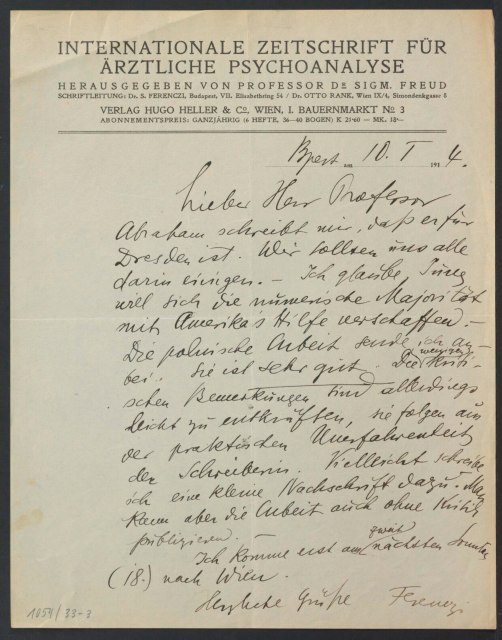 INTERNATIONALE ZEITSCHRIFT FÜR
ÄRZTLICHE PSYCHOANALYSE
HERAUSGEGEBEN VON PROFESSOR DR SIGM. FREUD
SCHRIFTLEITUNG: Dr. S. FERENCZI, Budapest, VII. Elisabethring 54 / Dr. OTTO RANK, Wien IX/4, Simondenkgasse 8
VERLAG HUGO HELLER & Co, WIEN, I. BAUERNMARKT No 3
ABONNEMENTSPREIS: GANZJÄHRIG (6 HEFTE, 36—40 BOGEN) K 21·60 = MK. 18·—
Bpest am 10. I 1914.
Lieber Herr Professor
Abraham schreibt mir, daß er für
Dresden ist. Wir sollten uns alle
darin einigen. – Ich glaube, Jung
will sich die numerische Majorität
mit Amerika's Hilfe verschaffen. –
Die polnische Arbeit sende ich an-
bei. Sie ist sehr gut. Die wenigen kriti-
schen Bemerkungen sind allerdings
leicht zu entkräften, sie folgen aus
der praktischen Unerfahrenheit
der Schreiberin. Vielleicht schreibe
ich eine kleine Nachschrift dazu. Man
kann aber die Arbeit auch ohne Kritik
publizieren. –
Ich komme erst am nächsten Sonntag
(18.) nach Wien.
Herzliche Grüße Ferenczi
1051/33-3